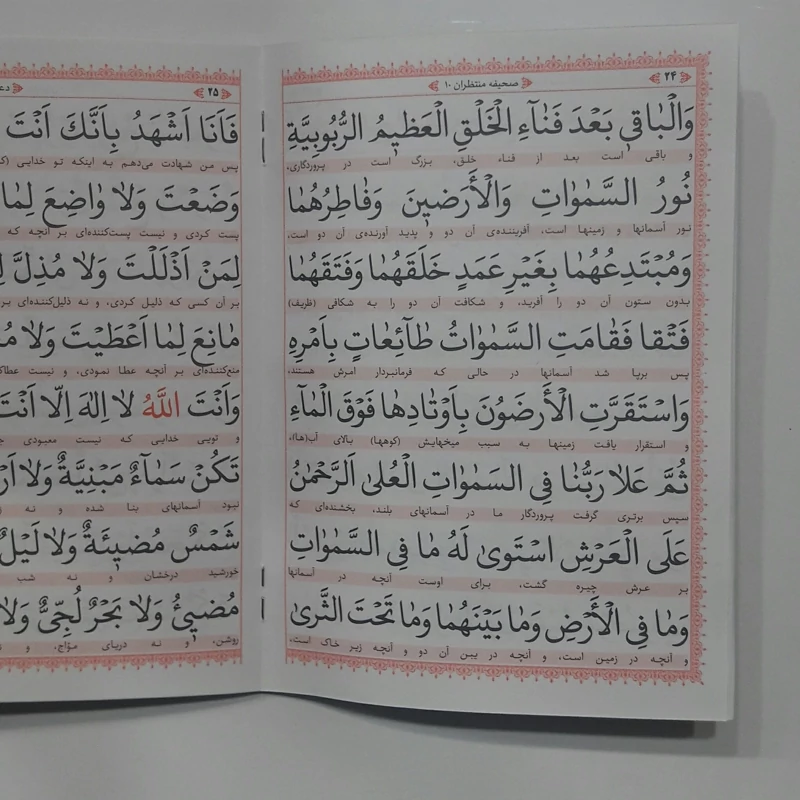 ۲۴
صحیفه منتظران ۱۰
وَالْبٰاقی بَعْدَ فَنٰآءِ الْخَلْقِ الْعَظیمُ الرُّبُوبِیَّةِ
و باقی است بعد از فناء خلق، بزرگ است در پروردگاری،
نُورُ السَّمٰوٰاتِ وَالْأَرَضینَ وَفٰاطِرُهُمٰا
نور آسمانها و زمینها است، آفریننده‌ی آن دو و پدید آورنده‌ی آن دو است،
وَمُبْتَدِعُهُمٰا بِغَیْرِ عَمَدٍ خَلَقَهُمٰا وَفَتَقَهُمٰا
بدون ستون آن دو را آفرید، و شکافت آن دو را به شکافی (ظریف)
فَتْقًا فَقٰامَتِ السَّمٰوٰاتُ طٰآئِعٰاتٍ بِاَمْرِهِ
پس برپا شد آسمانها در حالی که فرمانبردار امرش هستند،
وَاسْتَقَرَّتِ الْأَرَضُونَ بِاَوْتٰادِهٰا فَوْقَ الْمٰآءِ
و استقرار یافت زمینها به سبب میخهایش (کوهها) بالای آب(ها)،
ثُمَّ عَلٰا رَبُّنٰا فِی السَّمٰوٰاتِ الْعُلیٰ اَلرَّحْمٰنُ
سپس برتری گرفت پروردگار ما در آسمانهای بلند، بخشنده‌ای که
عَلَی الْعَرْشِ اسْتَویٰ لَهُ مٰا فِی السَّمٰوٰاتِ
بر عرش چیره گشت، برای اوست آنچه در آسمانها
وَمٰا فِی الْأَرْضِ وَمٰا بَیْنَهُمٰا وَمٰا تَحْتَ الثَّریٰ
و آنچه در زمین است، و آنچه در بین آن دو و آنچه زیر خاک است،
۲۵
فَاَنَا اَشْهَدُ بِاَنَّكَ اَنْتَ
پس من شهادت می‌دهم به اینکه تو خدایی
وَضَعْتَ وَلٰا وٰاضِعَ لِمٰا
پست کردی و نیست پست‌کننده‌ای بر آنچه که
لِمَنْ اَذْلَلْتَ وَلٰا مُذِلَّ
بر آن کسی که ذلیل کردی، و نه ذلیل‌کننده‌ای
مٰانِعَ لِمٰا اَعْطَیْتَ وَلٰا
منع‌کننده‌ای بر آنچه عطا نمودی، و نیست
وَاَنْتَ اللّٰهُ لٰا اِلٰهَ اِلّٰا اَنْتَ
و تویی خدایی که نیست معبودی
تَكُنْ سَمٰآءٌ مَبْنِیَّةٌ وَلٰا
نبود آسمانهای بنا شده و نه
شَمْسٌ مُضیٓئَةٌ وَلٰا لَیْلٌ
خورشید درخشان و نه شب
مُضیٓیٌٔ وَلٰا بَحْرٌ لُجِّیٌّ وَلٰا
روشن، و نه دریای موّاج، و